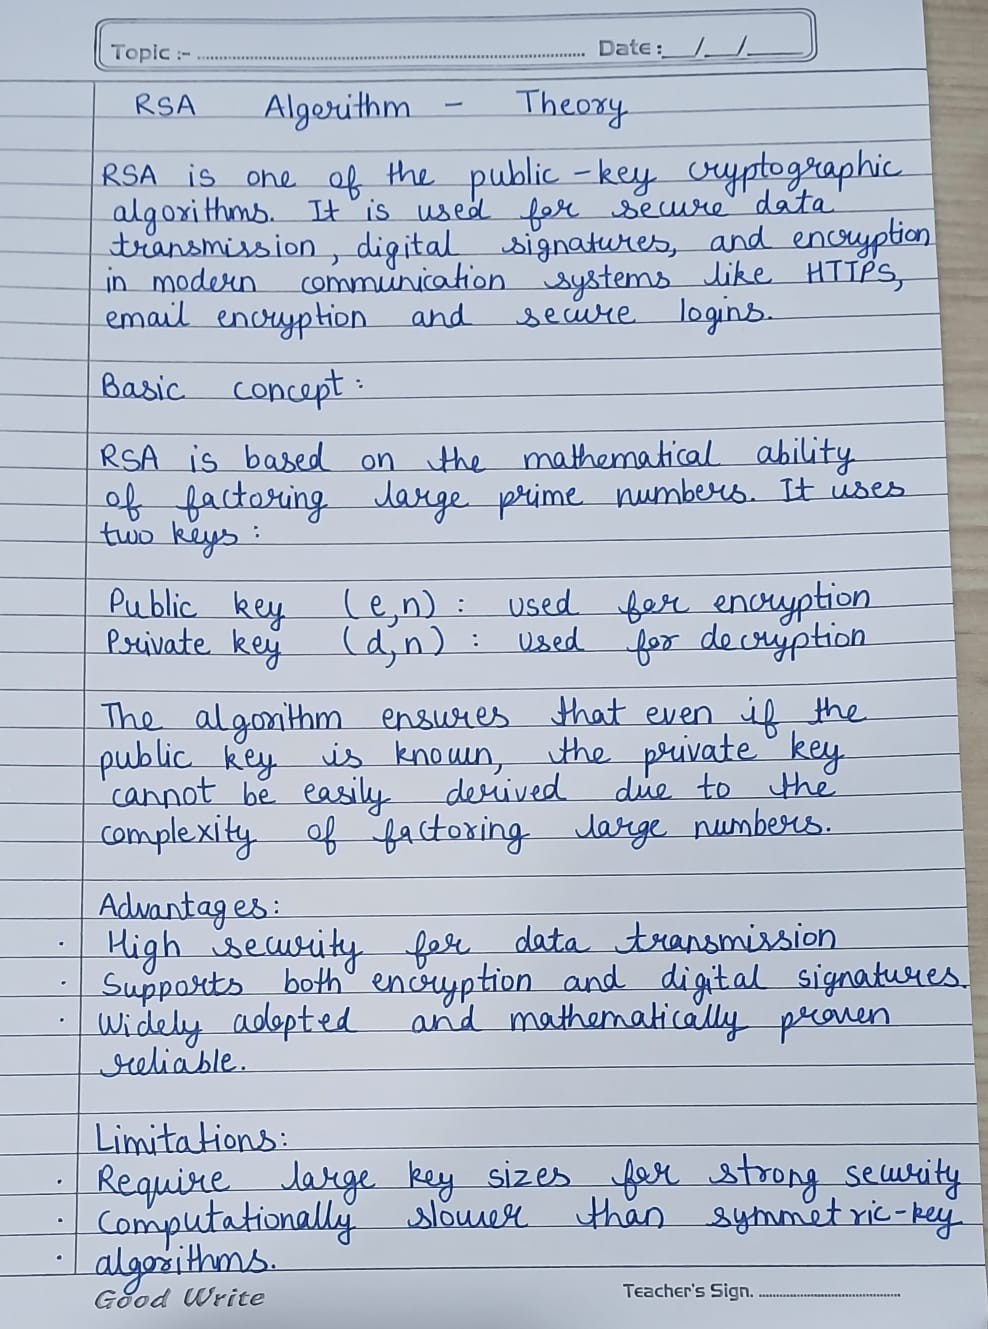 Topic :- Date : / /
RSA Algorithm - Theory
RSA is one of the public-key cryptographic
algorithms. It is used for secure data
transmission, digital signatures, and encryption
in modern communication systems like HTTPS,
email encryption and secure logins.
Basic concept :
RSA is based on the mathematical ability
of factoring large prime numbers. It uses
two keys :
Public key (e,n) : used for encryption
Private key (d,n) : used for decryption
The algorithm ensures that even if the
public key is known, the private key
cannot be easily derived due to the
complexity of factoring large numbers.
Advantages:
· High security for data transmission
· Supports both encryption and digital signatures.
· Widely adopted and mathematically proven
reliable.
Limitations:
· Require large key sizes for strong security
· Computationally slower than symmetric-key
· algorithms.
Good Write Teacher's Sign.